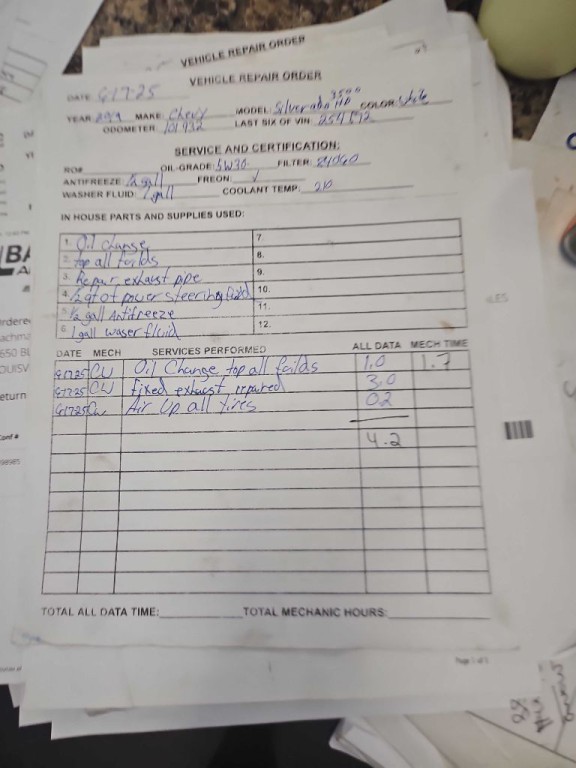 VEHICLE REPAIR ORDER
VEHICLE REPAIR ORDER
DATE 6-17-25
YEAR MAKE: Chevy MODEL: Silverado 3500 HD COLOR:
ODOMETER: 101932 LAST SIX OF VIN:
SERVICE AND CERTIFICATION:
RO# OIL-GRADE: 5W30 FILTER:
ANTIFREEZE: ½ gall FREON: ✓
WASHER FLUID: 1 gall COOLANT TEMP: 210
IN HOUSE PARTS AND SUPPLIES USED:
1. Oil change 7.
2. top all foilds 8.
3. Repair exhaust pipe 9.
4. ½ qt of power steering fluid 10.
5. ½ gall Antifreeze 11.
6. 1 gall waser fluid 12.
DATE MECH SERVICES PERFORMED ALL DATA MECH TIME
6-17-25 CW Oil Change top all foilds 1.0 1.7
6-17-25 CW fixed exhaust repaired 3.0
6-17-25 CW Air Up all tires 0.2
4.2
TOTAL ALL DATA TIME: TOTAL MECHANIC HOURS:
Page 1 of 1